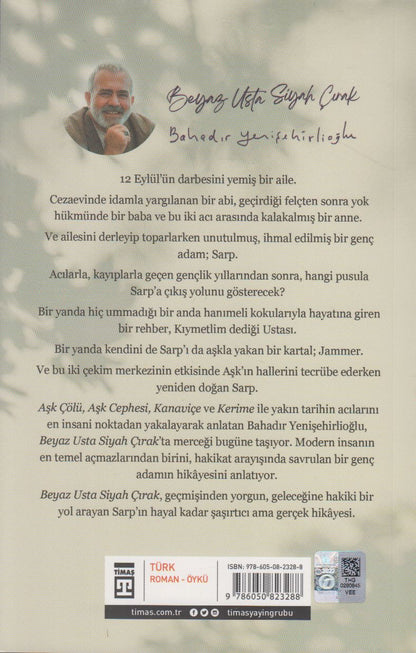 Beyaz Usta Siyah Çırak
Bahadır Yenişehirlioğlu
12 Eylül'ün darbesini yemiş bir aile.
Cezaevinde idamla yargılanan bir abi, geçirdiği felçten sonra yok
hükmünde bir baba ve bu iki acı arasında kalakalmış bir anne.
Ve ailesini derleyip toparlarken unutulmuş, ihmal edilmiş bir genç
adam; Sarp.
Acılarla, kayıplarla geçen gençlik yıllarından sonra, hangi pusula
Sarp'a çıkış yolunu gösterecek?
Bir yanda hiç ummadığı bir anda hanımeli kokularıyla hayatına giren
bir rehber, Kıymetlim dediği Ustası.
Bir yanda kendini de Sarp'ı da aşkla yakan bir kartal; Jammer.
Ve bu iki çekim merkezinin etkisinde Aşk'ın hallerini tecrübe ederken
yeniden doğan Sarp.
Aşk Çölü, Aşk Cephesi, Kanaviçe ve Kerime ile yakın tarihin acılarını
en insani noktadan yakalayarak anlatan Bahadır Yenişehirlioğlu,
Beyaz Usta Siyah Çırak'ta merceği bugüne taşıyor. Modern insanın
en temel açmazlarından birini, hakikat arayışında savrulan bir genç
adamın hikâyesini anlatıyor.
Beyaz Usta Siyah Çırak, geçmişinden yorgun, geleceğine hakiki bir
yol arayan Sarp'ın hayal kadar şaşırtıcı ama gerçek hikâyesi.
TİMAŞ
TÜRK
ROMAN - ÖYKÜ
ISBN: 978-605-08-2328-8
9 786050 823288
timas.com.tr
timasyayingrubu
VEE